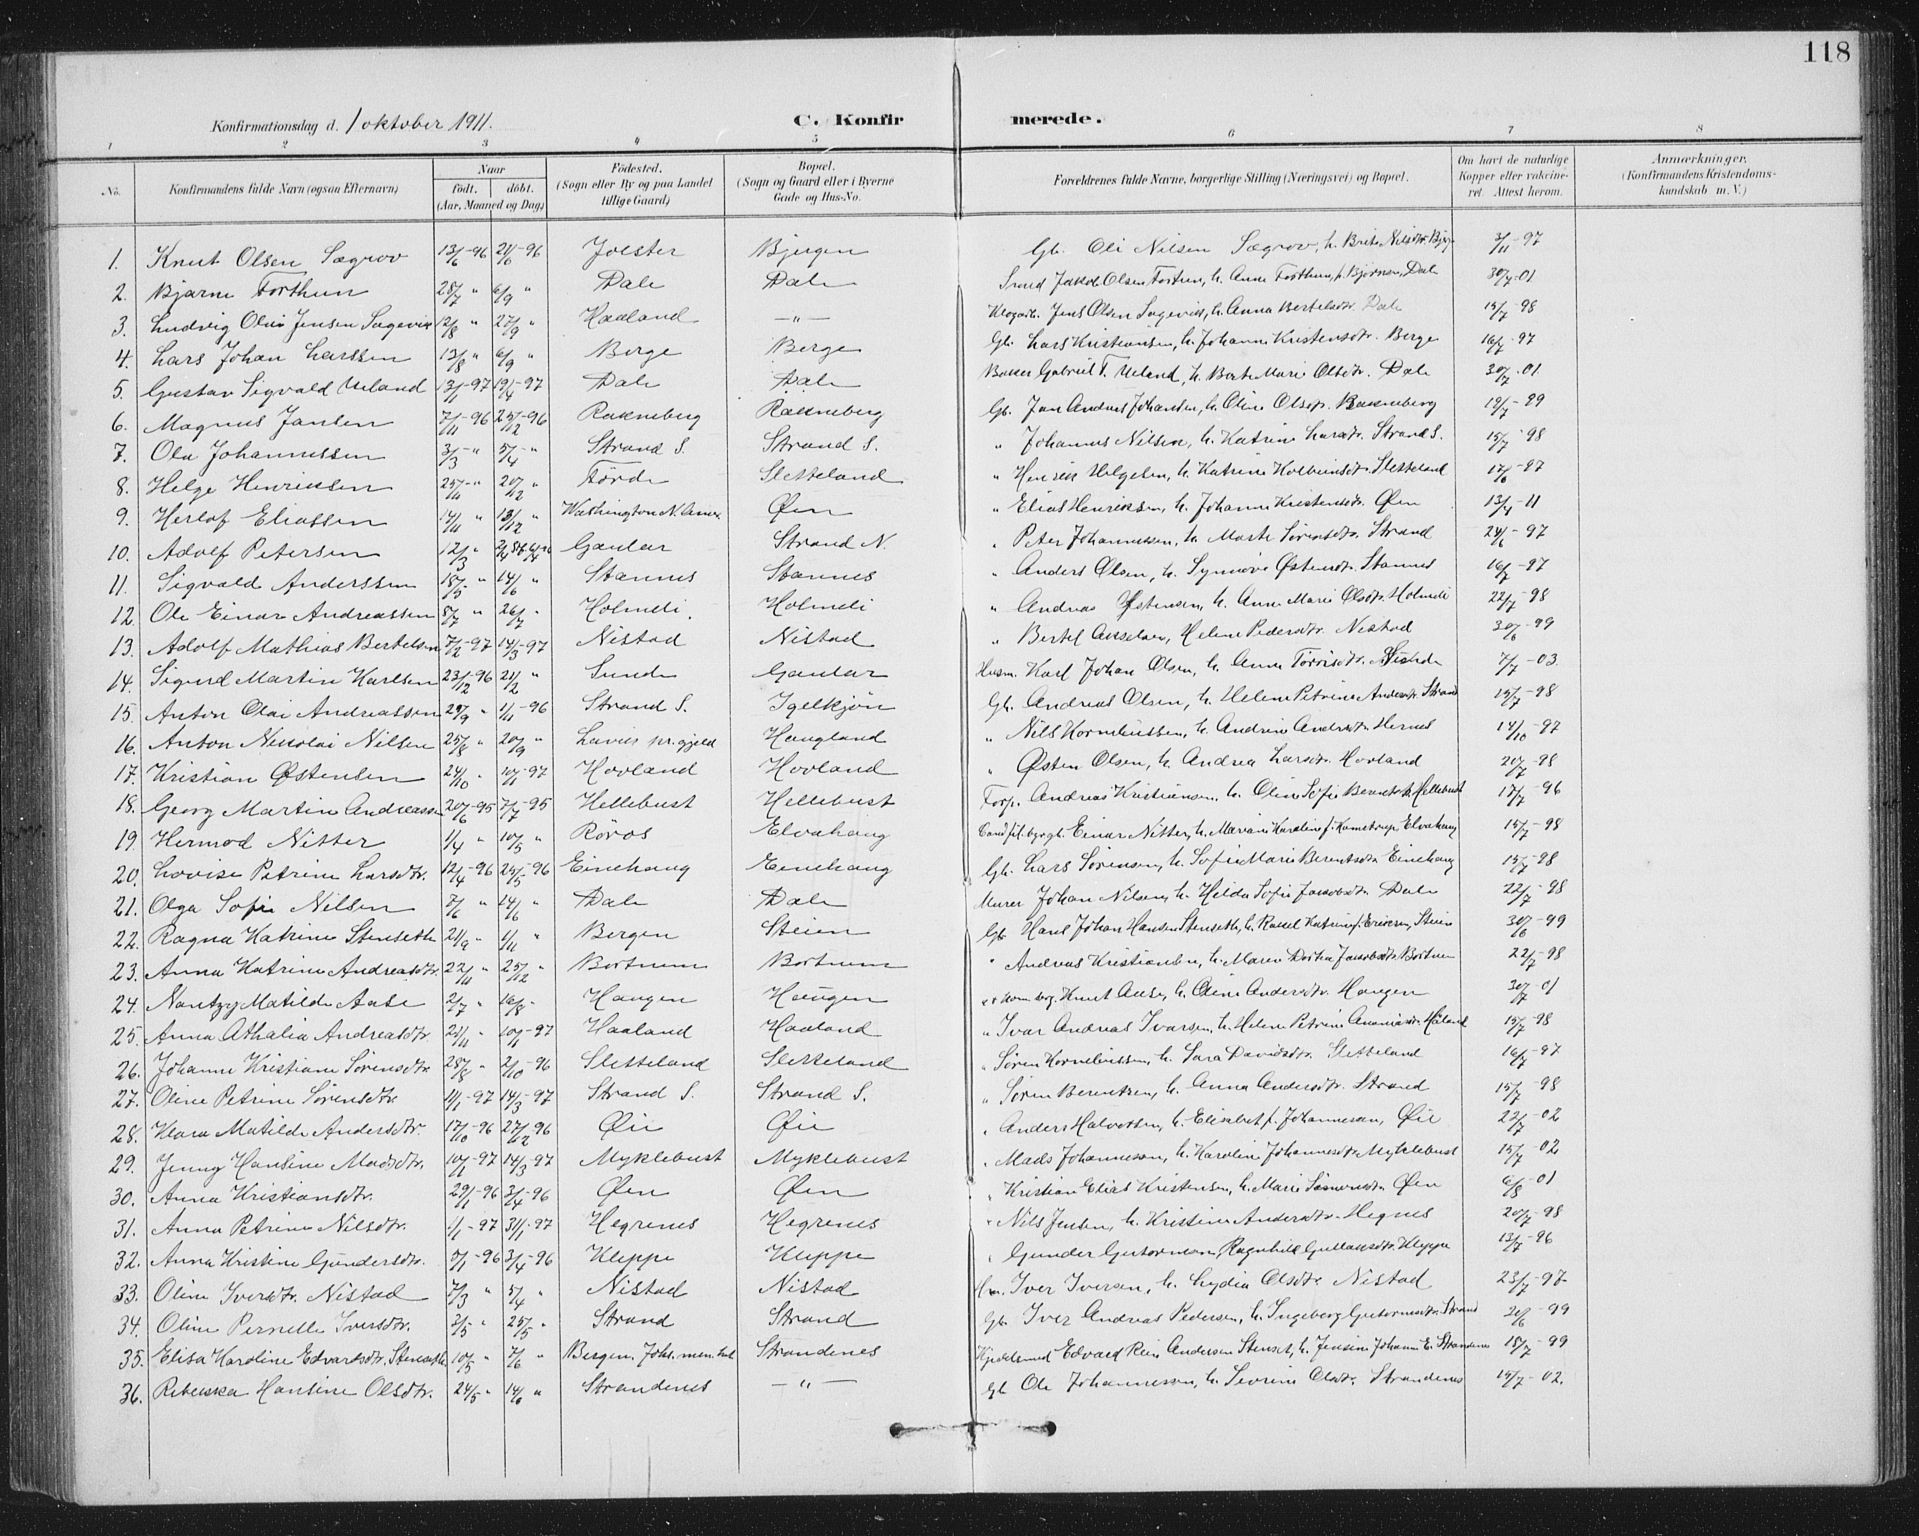 118
Konfirmationsdag d. 1 oktober 1911. C. Konfirmerede.
1 2 3 4 5 6 7 8
No. Konfirmandens fulde Navn (ogsaa Efternavn) Naar født. døbt. (Aar, Maaned og Dag) Fødested. (Sogn eller By og paa Landet tillige Gaard) Bopæl. (Sogn og Gaard eller i Byerne Gade og Hus-No. Forældrenes fulde Navne, borgerlige Stilling (Næringsvei) og Bopæl. Om havt de naturlige Kopper eller vakcineret. Attest herom. Anmærkninger. (Konfirmandens Kristendomskundskab m. V.)
1. Knut Olsen Sægrov 13/6-96 21/6-96 Jølster Bjergen Gb. Oli Nilsen Sægrov, h. Brite Nilsdtr. 3/11-97
2. Bjarne Forthun 28/7 " 6/9 " Dale Dale Jakob Olsen Fortun, h. Anne Forthun, f. Bjørnsen, Dale 30/7-01
3. Ludvig Olus Jensen Sagevik 12/8 " 27/9 " Haaland — " — Jens Olsen Sagevik, h. Anna Bertelsdtr. Dale 15/7-98
4. Lars Johan Larssen 13/8 " 6/9 " Berge Berge Gb. Lars Kristiansen, h. Johanne Kristensdtr. Berge 16/7-97
5. Gustav Sigvald Ueland 3/1-97 19/4-97 Dale Dale Gabriel T. Ueland, h. Berte Marie Olsdtr. Dale 30/7-01
6. Magnus Jansen 7/11-96 25/12-96 Rakneberg Rakneberg Gb. Jan Andreas Johansen, h. Oline Olsdtr. Rakneberg 19/7-99
7. Ola Johannessen 3/3 - " 5/4 - " Strand S. Strand S. " Johannes Nilsen, h. Katrine Larsdtr. Strand S. 15/7-98
8. Helge Henriksen 25/11 - " 20/12 " Førde Sletteland " Henrik Helgesen, h. Katrine Kolbeinsdtr. Sletteland 17/6-97
9. Herlof Eliassen 14/11 " 13/12 " Washington N. Amer. Øen " Elias Henriksen, h. Johanne Kristensdtr. Øen 13/4-11
10. Adolf Petersen 12/3 " Gaular Strand N. " Peter Johannessen, h. Marte Sørensdtr. Strand 24/6-97
11. Sigvald Anderssen 18/5 " 14/6 " Stannes Stannes " Anders Olsen, h. Synnøve Østensdtr. Stannes 16/7-97
12. Ole Einar Andreassen 5/7 " 26/7 " Holmedi Holmedi " Andreas Østensen, h. Anne Marie Olsdtr. Holmedi 22/7-98
13. Adolf Mathias Bertelsen 7/2-97 14/3-97 Nistad Nistad " Bertel Anselsen, Helene Pedersdtr. Nistad 30/6-99
14. Sigurd Martin Karlsen 23/12-96 21/2 " Sunde Gaular Husm. Karl Johan Olsen, h. Anna Torrisdtr. Sunde 7/7-03
15. Anton Olai Andreassen 29/9 " 1/11-96 Strand S. Igelkjøn Gb. Andreas Olsen, h. Helene Petrine Andersdtr. Strand 15/7-98
16. Anton Nikolai Nilsen 25/8 " 20/9 " Lavik pr.gjeld Haugland " Nils Korneliussen, h. Andrine Andersdtr. Hernes 14/10-97
17. Kristian Østensen 24/10 " 10/1-97 Hovland Hovland " Østen Olsen, h. Andrea Larsdtr. Hovland 20/7-98
18. Georg Martin Andreassen 20/6-95 7/7-95 Hellebust Hellebust Forp. Andreas Kristiansen, h. Oline Sofie Berentsdtr. Hellebust 17/7-96
19. Hermod Nitter 1/4 " 10/5 " Røros Elvahaug Cand.fil. Einar Nitter, h. Marane Karoline f. Elvahaug 15/7-98
20. Lovise Petrine Larsdtr. 12/4-96 25/5-96 Einehaug Einehaug Gb. Lars Sørensen, h. Sofie Marie Berentsdtr. Einehaug 15/7-98
21. Olga Sofie Nilsen 7/6 " 14/6 " Dale Dale Murer Johan Nilsen, h. Hilda Sofie Jakobsdtr. Dale 22/7-98
22. Ragna Katrine Stenseth 21/9 " 1/11 " Bergen Steien Gb. Hans Johan Hansen Stenseth, h. Rakel Katrine f. Eriksen, Steien 30/6-99
23. Anna Katrine Andreasdtr. 22/11 " 25/12 - Bortnem Bortnem " Andreas Kristiansen, h. Maren Dortea Jakobsdtr. Bortnen 22/7-98
24. Nantzy Matilde Aase 2/7 " 16/8 - Haugen Haugen Knut Aase, h. Oline Andersdtr. Haugen 30/7-01
25. Anna Athalia Andreasdtr. 21/11 - 10/1-97 Haaland Haaland " Ivar Andreas Ivarsen, h. Helene Petrine Ananiasdtr. Håland 15/7-98
26. Johanne Kristiane Sørensdtr. 28/8 - 2/10-96 Sletteland Sletteland " Søren Korneliussen, h. Sara Davidsdtr. Sletteland 16/7-97
27. Oline Petrine Sørensdtr. 11/1-97 14/3-97 Strand S. Strand S. " Søren Berentsen, h. Anna Andersdtr. Strand 15/7-98
28. Klara Matilde Andersdtr. 17/10-96 27/12-96 Øie Øie " Anders Halvorsen, h. Elisabet f. Johannesen, Øie 22/7-02
29. Jenny Hansine Madsdtr. 10/1-97 14/3-97 Myklebust Myklebust " Mads Johannesen, h. Karoline Johannesdtr. Myklebust 15/7-02
30. Anna Kristiansdtr. 29/1-96 3/4-96 Øen Øen " Kristian Elias Kristensen, h. Marie Simonsdtr. Øen 6/8-01
31. Anna Petrine Nilsdtr. 1/1-97 31/1-97 Hegrenes Hegrenes " Nils Jensen, h. Kristine Andersdtr. Hegnes 20/7-98
32. Anna Kristine Gundersdtr. 5/1-96 3/4-96 Kleppe Kleppe " Gunder Gutormsen, Ragnhild Gullaksdtr. Kleppe 13/7-96
33. Oline Iversdtr. Nistad 7/3 " 5/4 " Nistad Nistad Hm. Iver Iversen, h. Lydia Olsdtr. Nistad 23/7-97
34. Oline Pernelle Iversdtr. 2/5 " 25/5 " Strand Strand Gb. Iver Andreas Pedersen, h. Ingeborg Gutormsdtr. Strand 20/6-99
35. Elisa Karoline Edvardsdtr. Stenseth 10/5 " 7/6 " Bergen, Johs. menhet Strandenes Edvard Rein Andersen Stenset, h. Jensine Johanne E. Strandenes 15/7-99
36. Rebekka Hansine Olsdtr. 24/5 " 14/6 " Strandenes — " — Gb. Ole Johannessen, h. Severine Olsdtr. Strandenes 15/7-02.